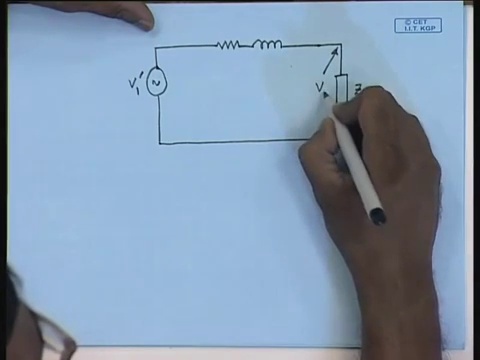 © CET
I.I.T. KGP
V₁′
V
Z